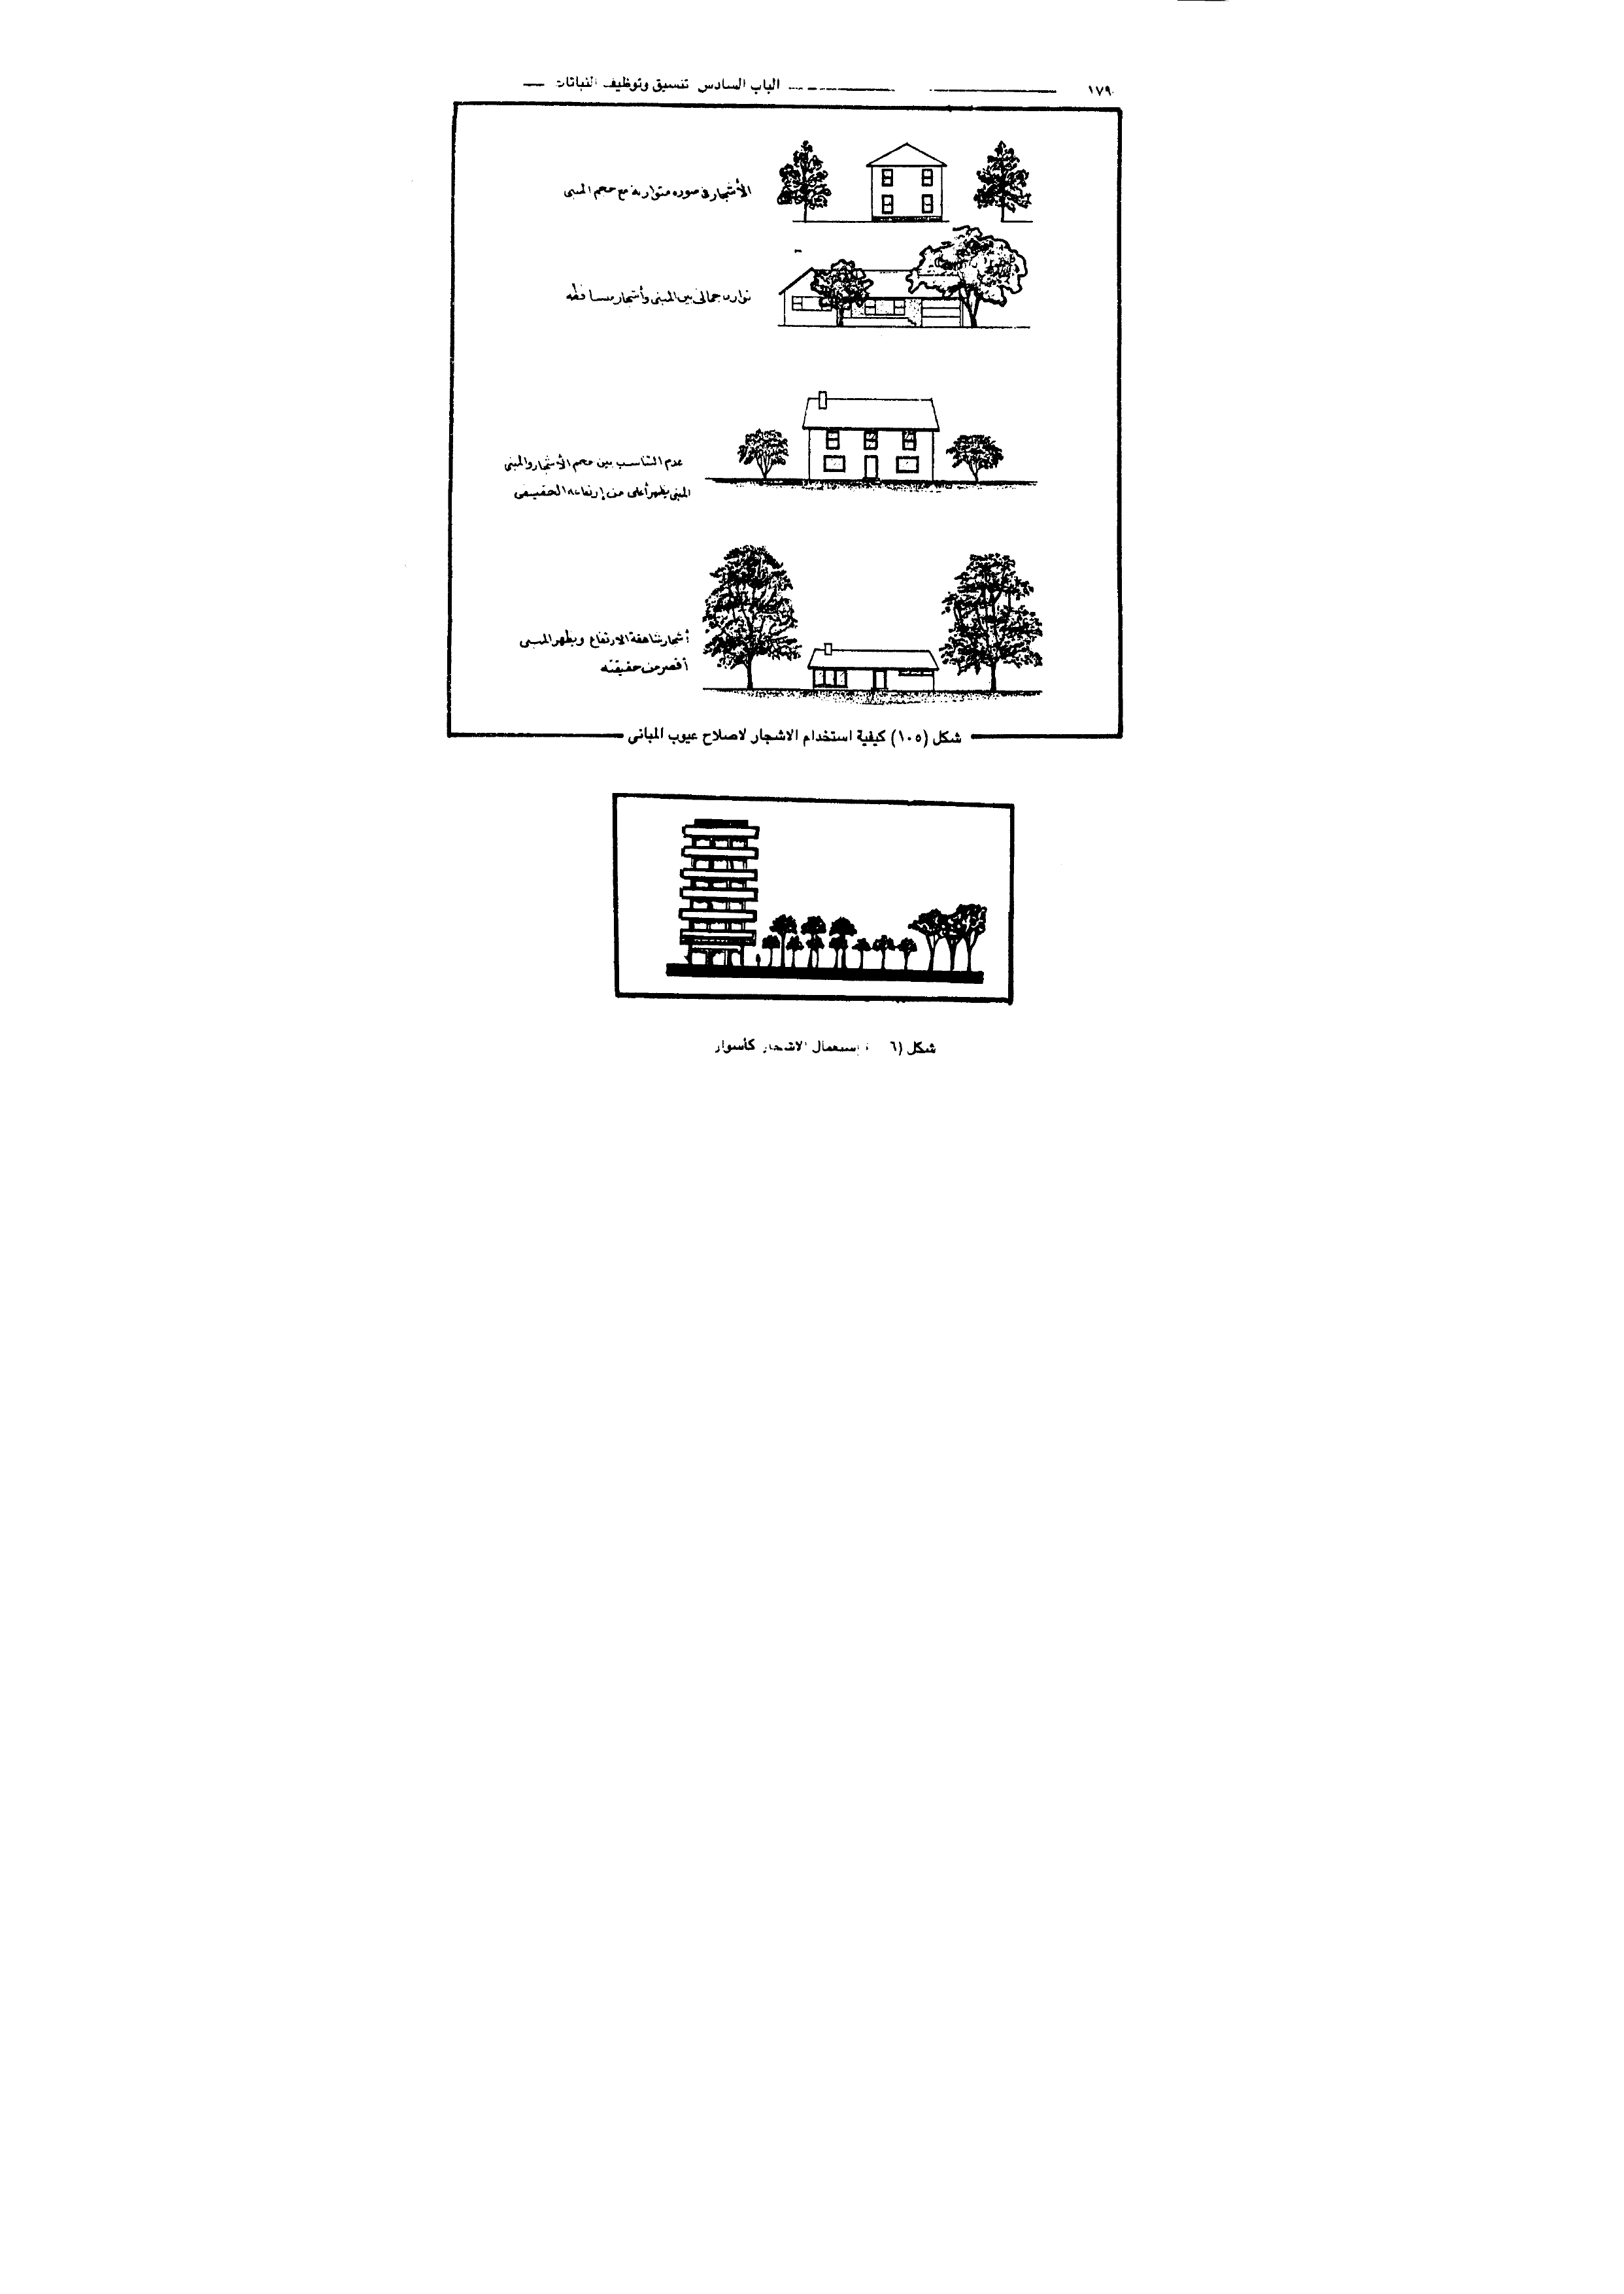 ١٧٩
الباب السادس تنسيق وتوظيف النباتات
الأشجار فى صوره متوازنة مع حجم المبنى
توازن جمالى بين المبنى وأشجار متساقطه
عدم التناسب بين حجم الأشجار والمبنى
المبنى يظهر أعلى من إرتفاعه الحقيقى
أشجار شاهقة الارتفاع ويظهر المبنى
أقصر من حقيقته
شكل (١٠٥) كيفية استخدام الاشجار لاصلاح عيوب المبانى
شكل (٦ إستعمال الاشجار كأسوار